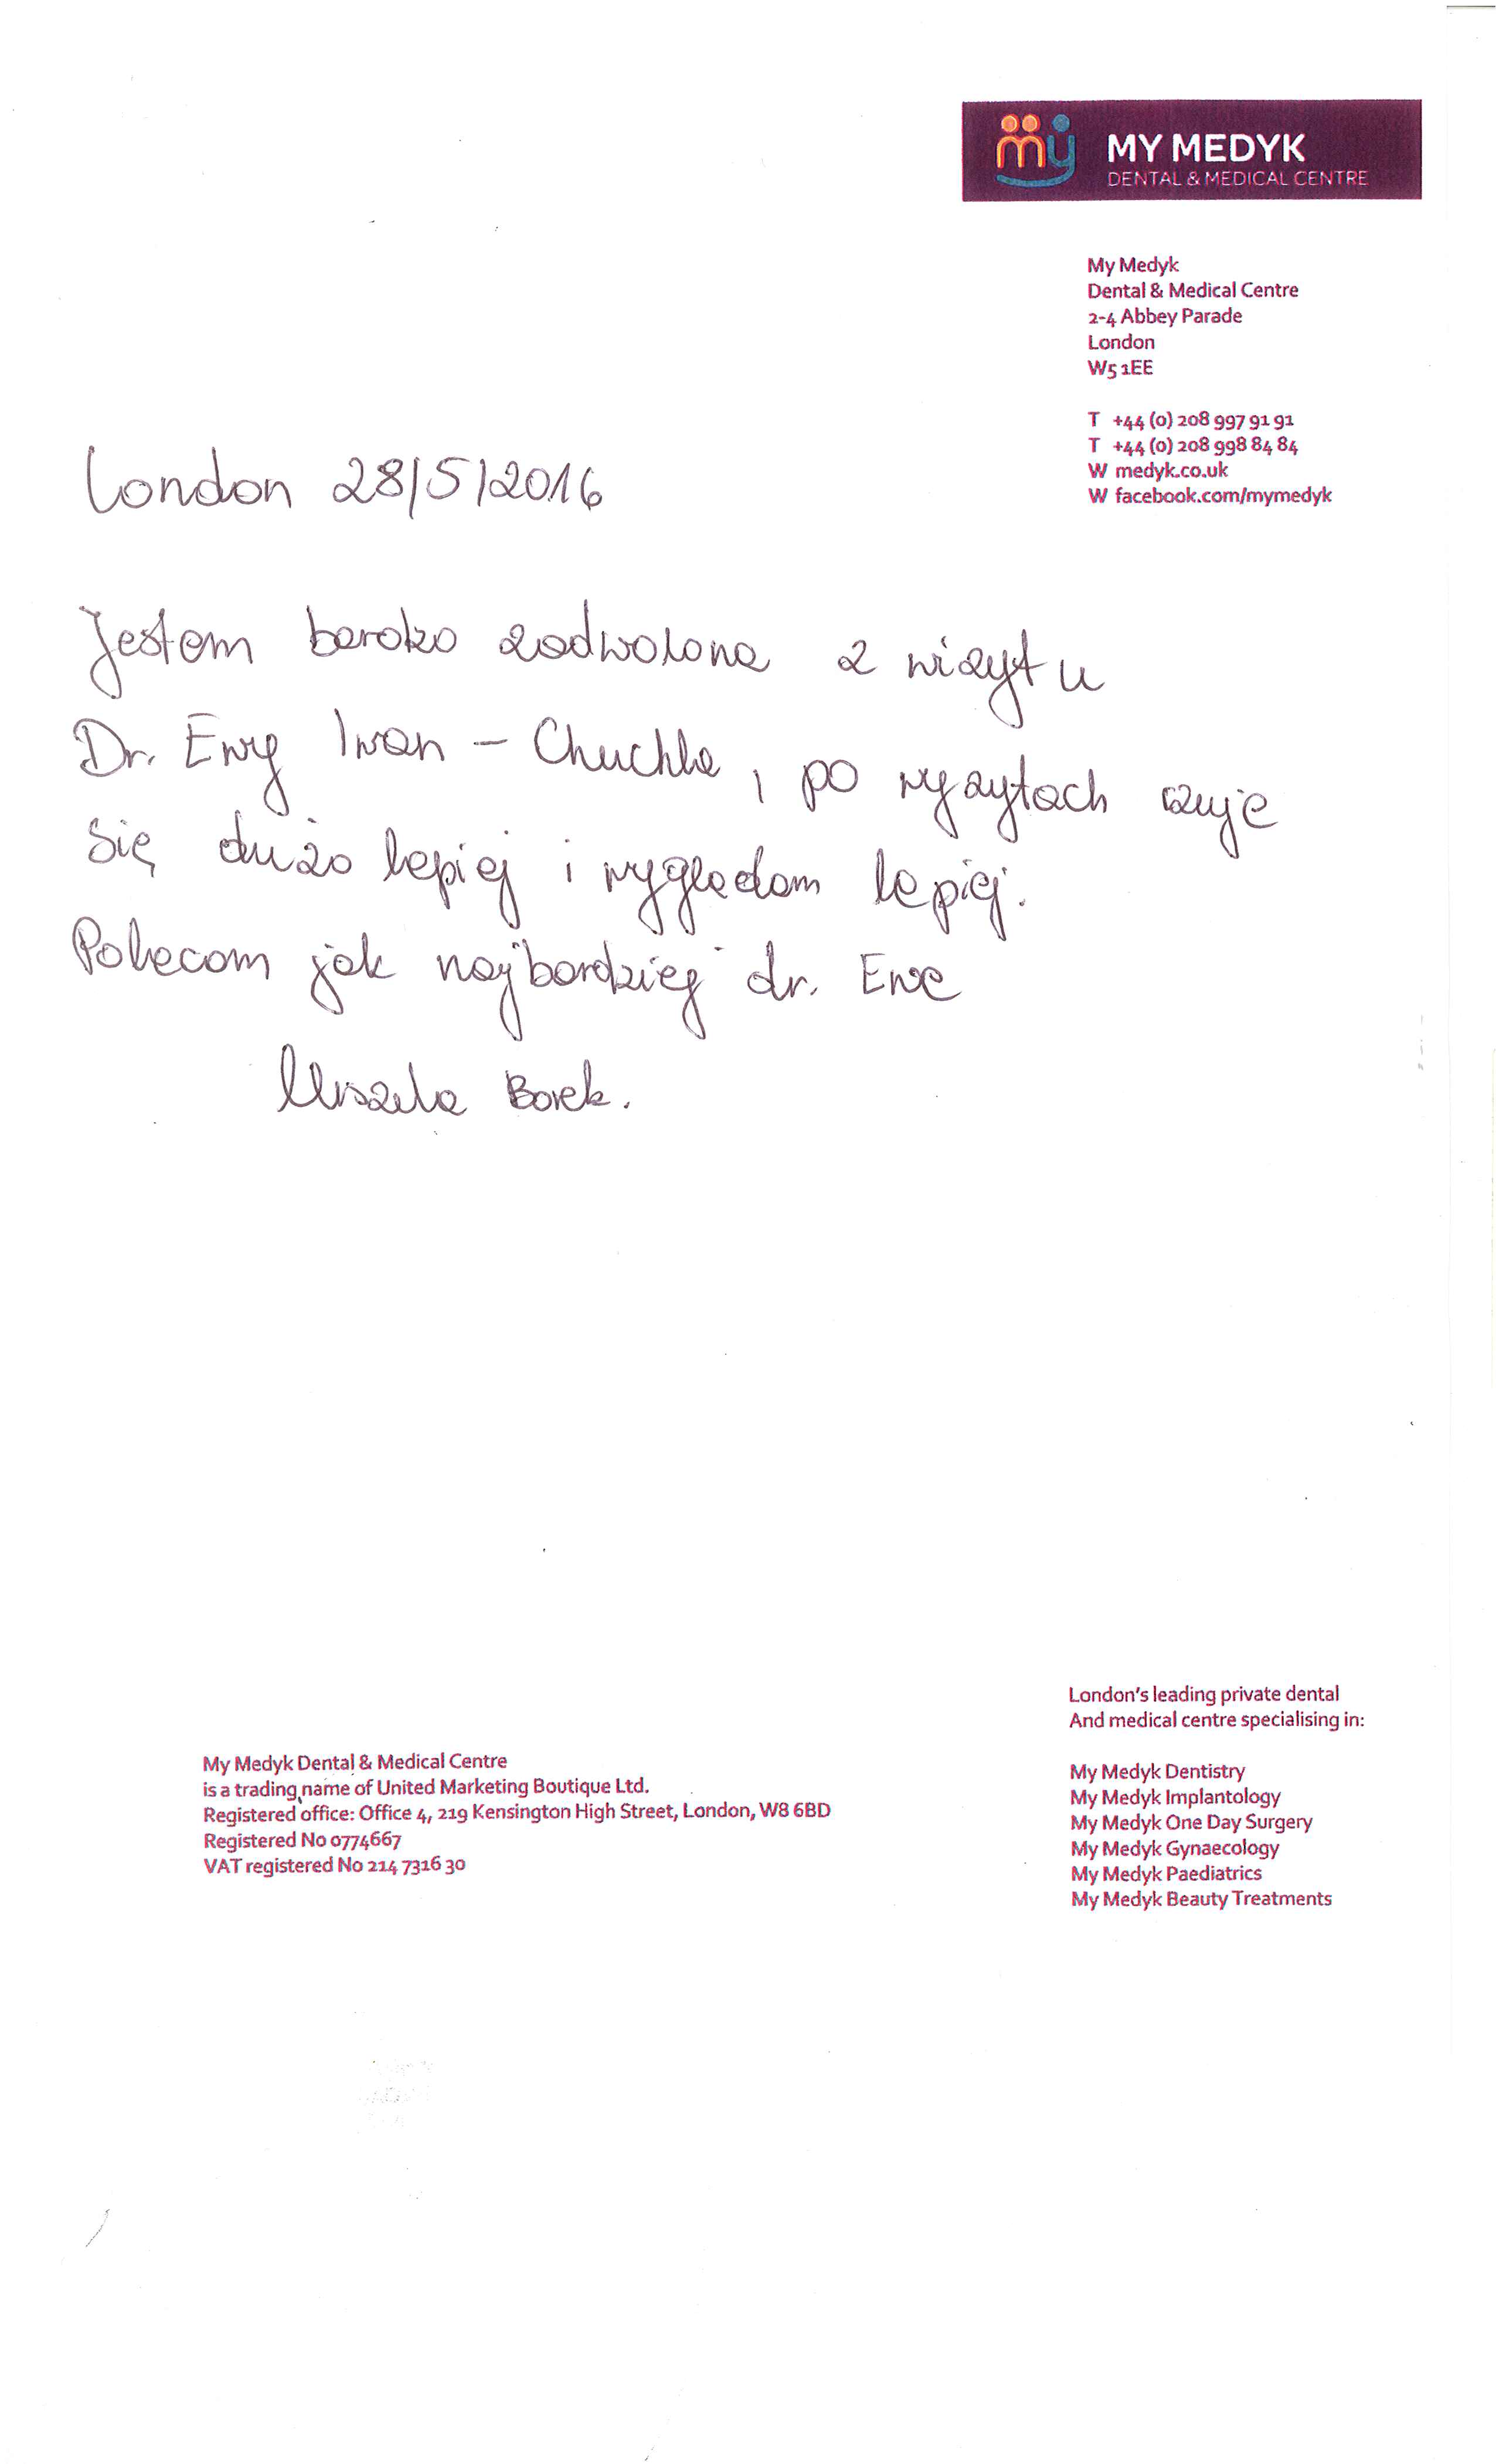 my MY MEDYK
DENTAL & MEDICAL CENTRE
My Medyk
Dental & Medical Centre
2-4 Abbey Parade
London
W5 1EE
T +44 (0) 208 997 91 91
T +44 (0) 208 998 84 84
W medyk.co.uk
W facebook.com/mymedyk
London 28/5/2016
Jestem bardzo zadwolona z wizyt u
Dr. Ewy Iwan - Chuchla, po wyzytach czuje
się dużo lepiej i wyglądam lepiej.
Polecam jak najbardziej dr. Ewe
Urszula Borek.
London's leading private dental
And medical centre specialising in:
My Medyk Dentistry
My Medyk Implantology
My Medyk One Day Surgery
My Medyk Gynaecology
My Medyk Paediatrics
My Medyk Beauty Treatments
My Medyk Dental & Medical Centre
is a trading name of United Marketing Boutique Ltd.
Registered office: Office 4, 219 Kensington High Street, London, W8 6BD
Registered No 0774667
VAT registered No 214 7316 30